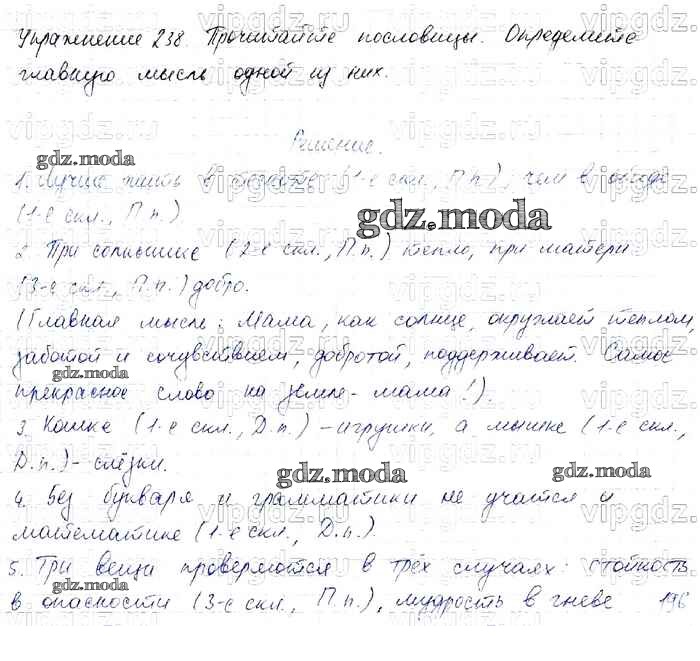 Упражнение 238. Прочитайте пословицы. Определите
главную мысль одной из них.
Решение.
1. Лучше жить в тесноте (1-е скл., П.п.), чем в обиде
(1-е скл., П.п.).
2. При солнышке (2-е скл., П.п.) тепло, при матери
(3-е скл., П.п.) добро.
(Главная мысль: Мама, как солнце, окружает теплом,
заботой и сочувствием, добротой, поддерживает. Самое
прекрасное слово на земле - мама!).
3. Кошке (1-е скл., Д.п.) - игрушки, а мышке (1-е скл.,
Д.п.) - слёзки.
4. Без букваря и грамматики не учатся и
математике (1-е скл., Д.п.).
5. Три вещи проверяются в трёх случаях: стойкость
в опасности (3-е скл., П.п.), мудрость в гневе 196
gdz.moda
gdz.moda
gdz.moda
gdz.moda
gdz.moda
gdz.moda
vipgdz.ru